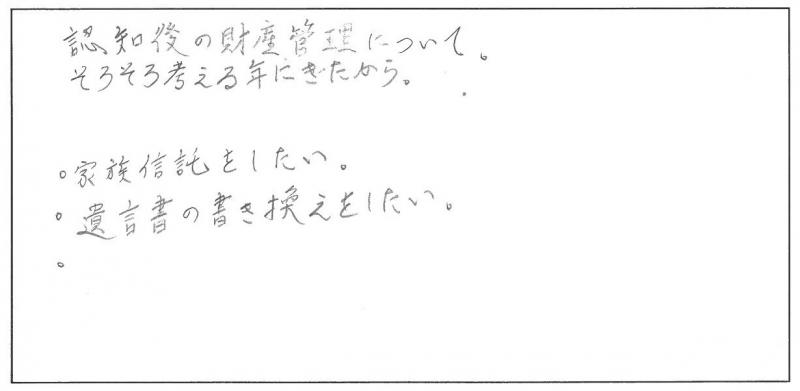 認知後の財産管理について。
そろそろ考える年にきたから。
。家族信託をしたい。
。遺言書の書き換えをしたい。
。